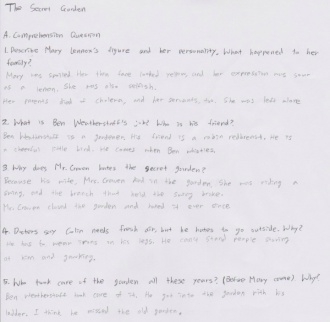 The Secret Garden
A. Comprehension Question
1. Describe Mary Lennox's figure and her personality. What happened to her
family?
Mary was spoiled. Her thin face looked and her expression was sour
as a lemon. She was also selfish.
Her parents died of cholera, and her servants, too. She was left alone
2. What is Ben Weatherstaff's job? Who is his friend?
Ben Weatherstaff is a gardener. His friend is a robin redbreast. He is
a cheerful little bird. He comes when Ben whistles.
3. Why does Mr. Craven hates the secret garden?
Because his wife, Mrs. Craven died in the garden. She was riding a
swing, and the branch that held the swing broke.
Mr. Craven closed the garden and hated it ever since.
4. Doctors say Colin needs fresh air, but he hates to go outside. Why?
He has to wear on his legs. He could stand people staring
at him and
5. Who took care of the garden all these years? (Before Mary came) Why?
Ben Weatherstaff took care of it. He got into the garden with his
ladder. I think he missed the old garden.